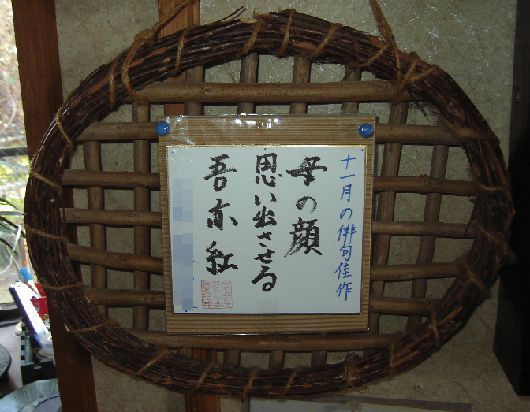 十一月の俳句佳作
母の顔
思い出させる
吾亦紅